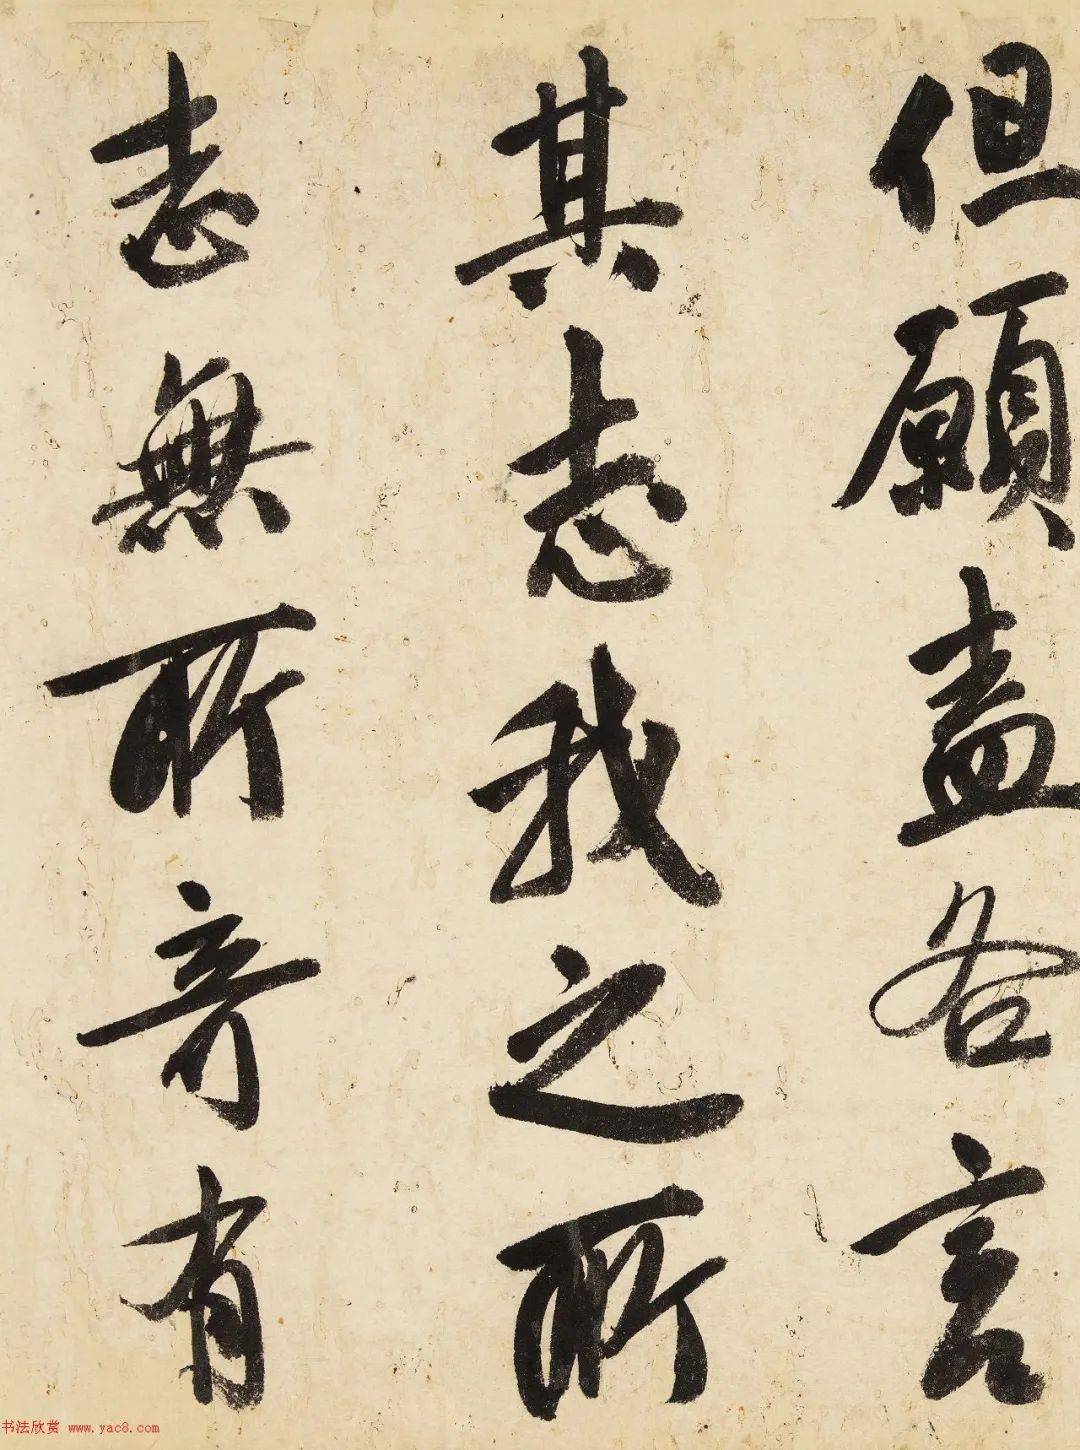 但願盡各言
其志我之所
志無所竒有
书法欣赏 www.yac8.com